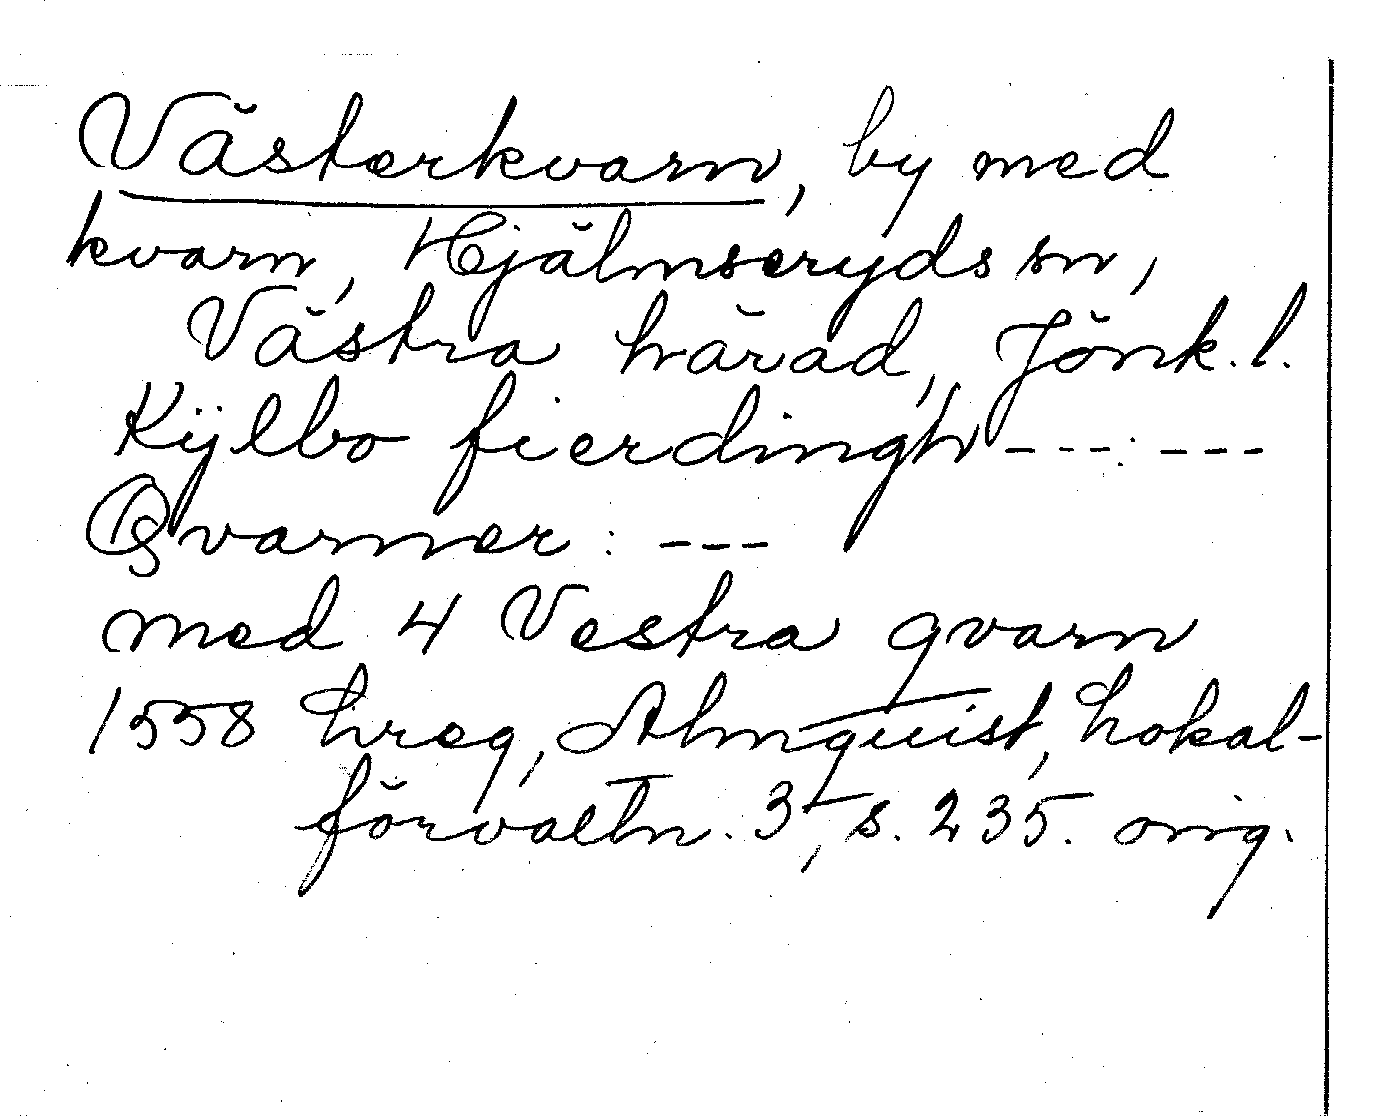 Västerkvarn, by med
kvarn, Hjälmseryds sn,
Västra härad, Jönk. l.
Kÿlbo fierdingh - - - : - - -
Qvarner : - - -
med 4 Vestra qvarn
1558 hreg, Almquist, Lokal-
förvaltn. 3, s. 235. orig.